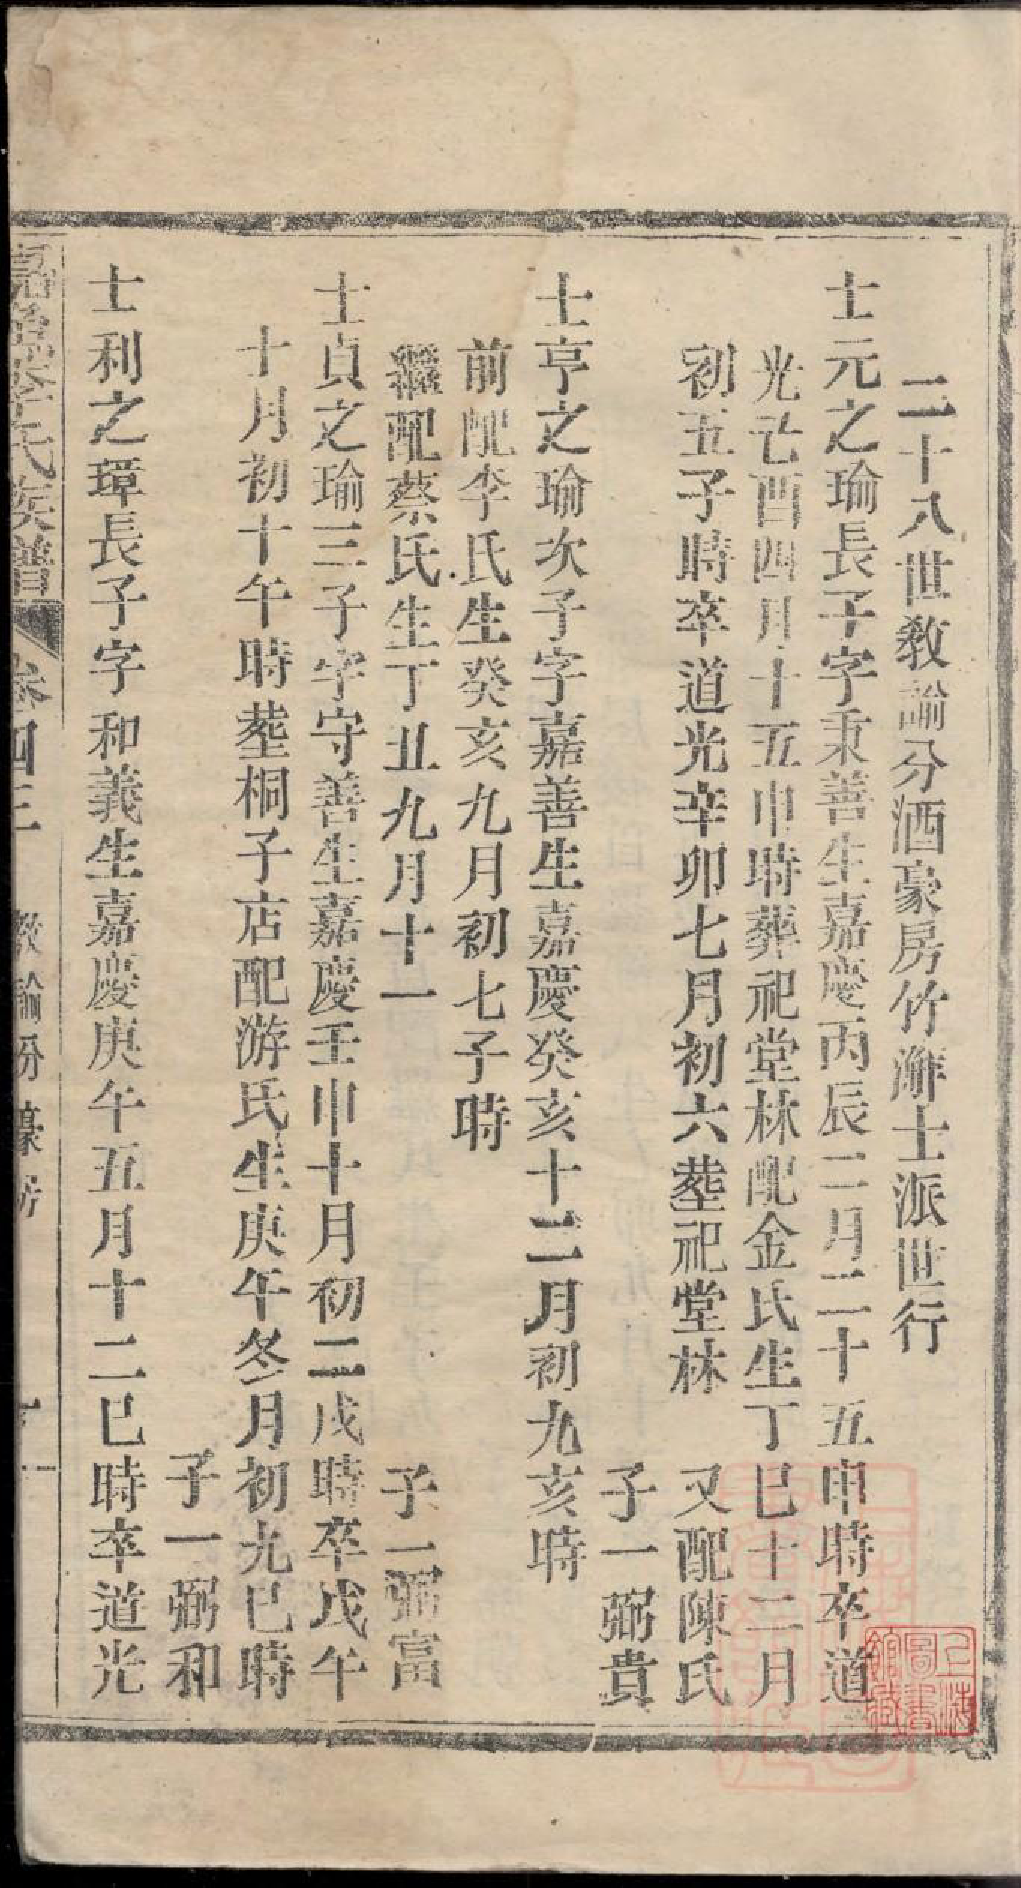 二十八世教諭分酒豪房竹澥士派世行
士元之瑜長子字秉善生嘉慶丙辰二月二十五申時卒道
光乙酉四月十五申時葬祀堂林配金氏生丁巳十二月
初五子時卒道光辛卯七月初六塟祀堂林 又配陳氏
子一弼貴
士亨之瑜次子字嘉善生嘉慶癸亥十二月初九亥時
前配李氏生癸亥九月初七子時
繼配蔡氏生丁丑九月十一 子一弼富
士貞之瑜三子字守善生嘉慶壬申十月初二戌時卒戊午
十月初十午時塟桐子店配游氏生庚午冬月初九巳時
子一弼和
士利之璋長子字和義生嘉慶庚午五月十二巳時卒道光
嘉魚李氏族譜 卷四三 教諭分 豪房
上海圖書館藏